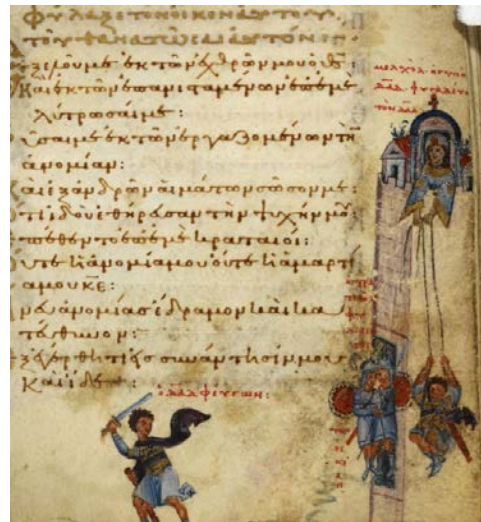 ΦΥΛΑΞΕ ΤΟΝ ΟΙΚΟΝ ΑΥΤΟΥ,
ΤΟΥ ΘΑΝΑΤΩΣΑΙ ΑΥΤΟΝ
ξελοῦ με ἐκ τῶν ἐχθρῶν μου ὁ θς:
Καὶ ἐκ τῶν ἐπανισταμένων ἐπ ἐμὲ
λύτρωσαί με:
ῦσαί με ἐκ τῶν ἐργαζομένων τὴ
ἀνομίαν:
καὶ ἐξ ἀνδρῶν αἱμάτων σῶσόν με:
τι ἰδοὺ ἐθήρευσαν τὴν ψυχήν μου
πέθεντο ἐπ ἐμὲ κραταιοί:
ὔτε ἡ ἀνομία μου οὔτε ἡ ἁμαρτί
α μου κε:
νευ ἀνομίας ἔδραμον καὶ κα
τεύθυνον:
ξεγέρθητι εἰς συνάντησίν μου
Καὶ ἴδε:
ὁ δαδ φεύγων: